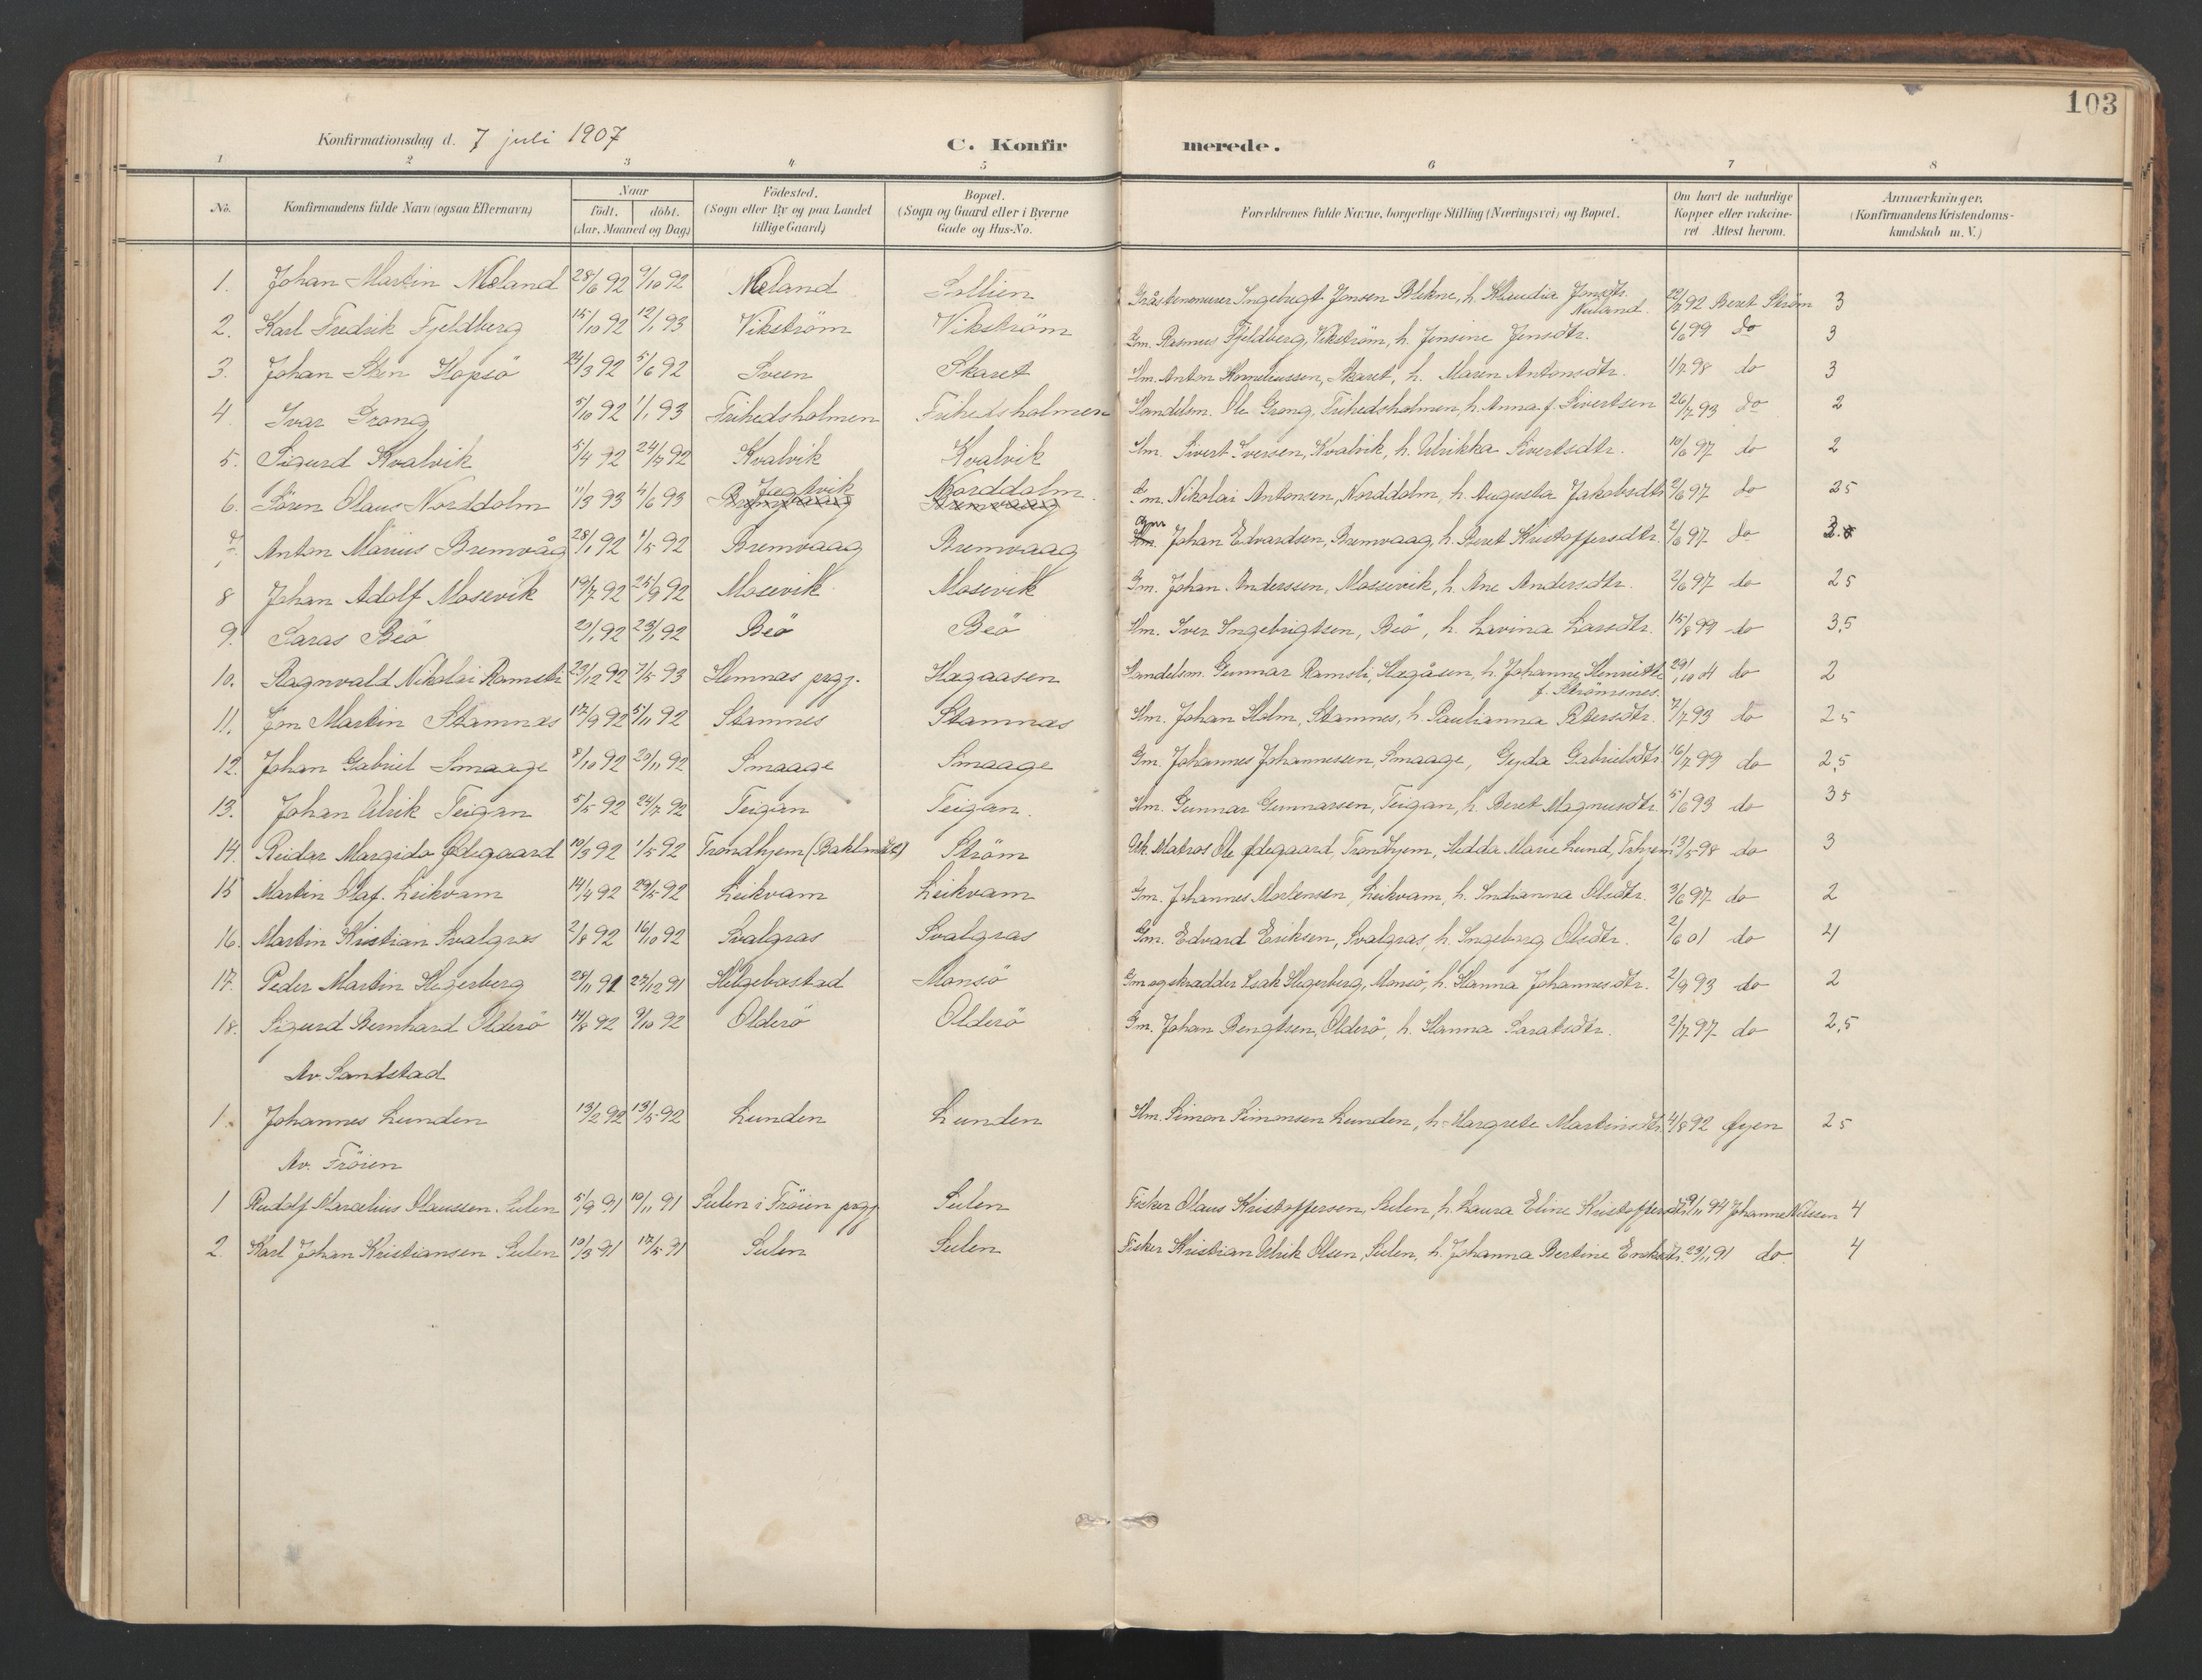 103
Konfirmationsdag d. 7 juli 1907
C. Konfir merede.
1 2 3 4 5 6 7 8
No. Konfirmandens fulde Navn (ogsaa Efternavn) Naar født. døbt. (Aar, Maaned og Dag) Fødested. (Sogn eller By og paa Landet tillige Gaard) Bopæl. (Sogn og Gaard eller i Byerne Gade og Hus-No. Forældrenes fulde Navne, borgerlige Stilling (Næringsvei) og Bopæl. Om havt de naturlige Kopper eller vaccineret Attest herom. Anmærkninger. (Konfirmandens Kristendomskundskab m. V.)
1. Johan Martin Meland 28/6 92 9/10 92 Meland Sollien Gråstensmurer Ingebrigt Jonsen Blekne, h. Klaudia Jonsdtr. 22/7 92 Beret Strøm 3
2. Karl Fredrik Fjeldberg 15/10 92 12/1 93 Vikström Vikström Gm. Rasmus Fjeldberg, Vikström, h. Jensine Jensdtr. 6/6 99 do 3
3. Johan Sten Hopsö 24/3 92 5/6 92 Sveen Skaret Hm. Anton Korneliussen, Skaret, h. Maren Antonsdtr. 1/7 98 do 3
4 Ivar Grong 5/10 92 1/1 93 Frihedsholmen Frihedsholmen Handelsm. Ole Grong, Frihedsholmen, h. Anna f. Sivertsen 26/7 93 do 2
5. Sigurd Kvalvik 5/4 92 24/7 92 Kvalvik Kvalvik Hm. Sivert Iversen, Kvalvik, h. Ulrikka Sivertsdtr. 10/6 97 do 2
6. Sören Olaus Norddalm 11/3 93 4/6 93 Jægtvik Norddalm. Gm. Nikolai Antonsen, Norddalm, h. Augusta Jakobsdtr 2/6 97 do 25
7. Anton Marius Bremvåg 28/1 92 1/5 92 Bremvaag Bremvaag Gm Johan Edvardsen, Bremvaag, h. Beret Kristoffersdtr. 2/6 97 do
8 Johan Adolf Mosevik 19/7 92 25/9 92 Mosevik Mosevik Gm. Johan Anderssen, Mosevik, h. Ane Andersdtr. 2/6 97 do 25
9. Saras Beö 23/1 92 Beö Beö Hm. Iver Ingebrigtsen, Beö, h. Lavina Larsdtr. 15/8 99 do 3,5
10. Ragnvald Nikolai Ramsli 23/12 92 7/5 93 Hemnæs prgj. Hægaasen Handelsm. Gunnar Ramsli, Hægåsen, h. Johanne Henriette f. Strömsnes. do 2
11. Jon Martin Stamnæs 17/9 92 5/11 92 Stamnes Stamnæs Hm. Johan Holm, Stamnes, h. Paulianna Petersdtr. 7/7 93 do 25
12. Johan Gabriel Smaage 8/10 92 20/11 92 Smaage Smaage Gm. Johannes Johannessen, Smaage, Gyda Gabrielsdtr. 16/7 99 do 2,5
13. Johan Ulrik Teigan 5/5 92 24/7 92 Teigan Teigan. Hm. Gunnar Gunnarsen, Teigan, h. Beret Magnusdtr. 5/6 93 do 35
14. Reidar Margido Ødegaard 10/3 92 1/5 92 Trondhjem (Baklandet) Ström Matros Ole Ødegaard, Trondhjem, Hedda Marie Lund, Trhjem 13/5 98 do 3
15 Martin Olaf. Leikvam 14/4 92 29/5 92 Leikvam Leikvam Gm. Johannes Mortensen, Leikvam, h. Indianna Olsdtr. 3/6 97 do 2
16. Martin Kristian Svalgras 2/8 92 16/10 92 Svalgras Svalgras Gm. Edvard Eriksen, Svalgras, h. Ingeborg Olsdtr. 2/6 01 do 4
17. Peder Martin Hegerberg 28/11 91 27/12 91 Helgebostad Monsö Gm og skrædder Isak Hegerberg, Monsö, h. Hanna Johannesdtr. 2/9 93 do 2
18. Sigurd Bernhard Olderö 14/8 92 9/10 92 Olderö Olderö Gm. Johan Bengtsen, Olderö, h. Hanna 2/7 97 do 2,5
Av. Sandstad
1. Johannes Lunden 13/2 92 13/5 92 Lunden Lunden Hm. Simon Simonsen Lunden, h. Margrete Martinsdtr 4/8 92 Øyen 25
Av. Fröien
1 Rudolf Marcelius Olaussen Sulen 5/9 91 10/11 91 Sulen i Fröien prgj Sulen Fisker Olaus Kristoffersen, Sulen, h. Laura Eline Kristoffersdtr 9/11 94 Johanne Nilssen 4
2. Karl Johan Kristiansen Sulen 10/3 91 17/5 91 Sulen Sulen Fisker Kristian Ulrik Olsen, Sulen, h. Johanna Bertine 23/11 91 do. 4